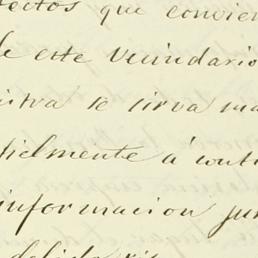 ectos que convien
de este Vecindario
sirva se sirva ma
fielmente á conti
informacion ju